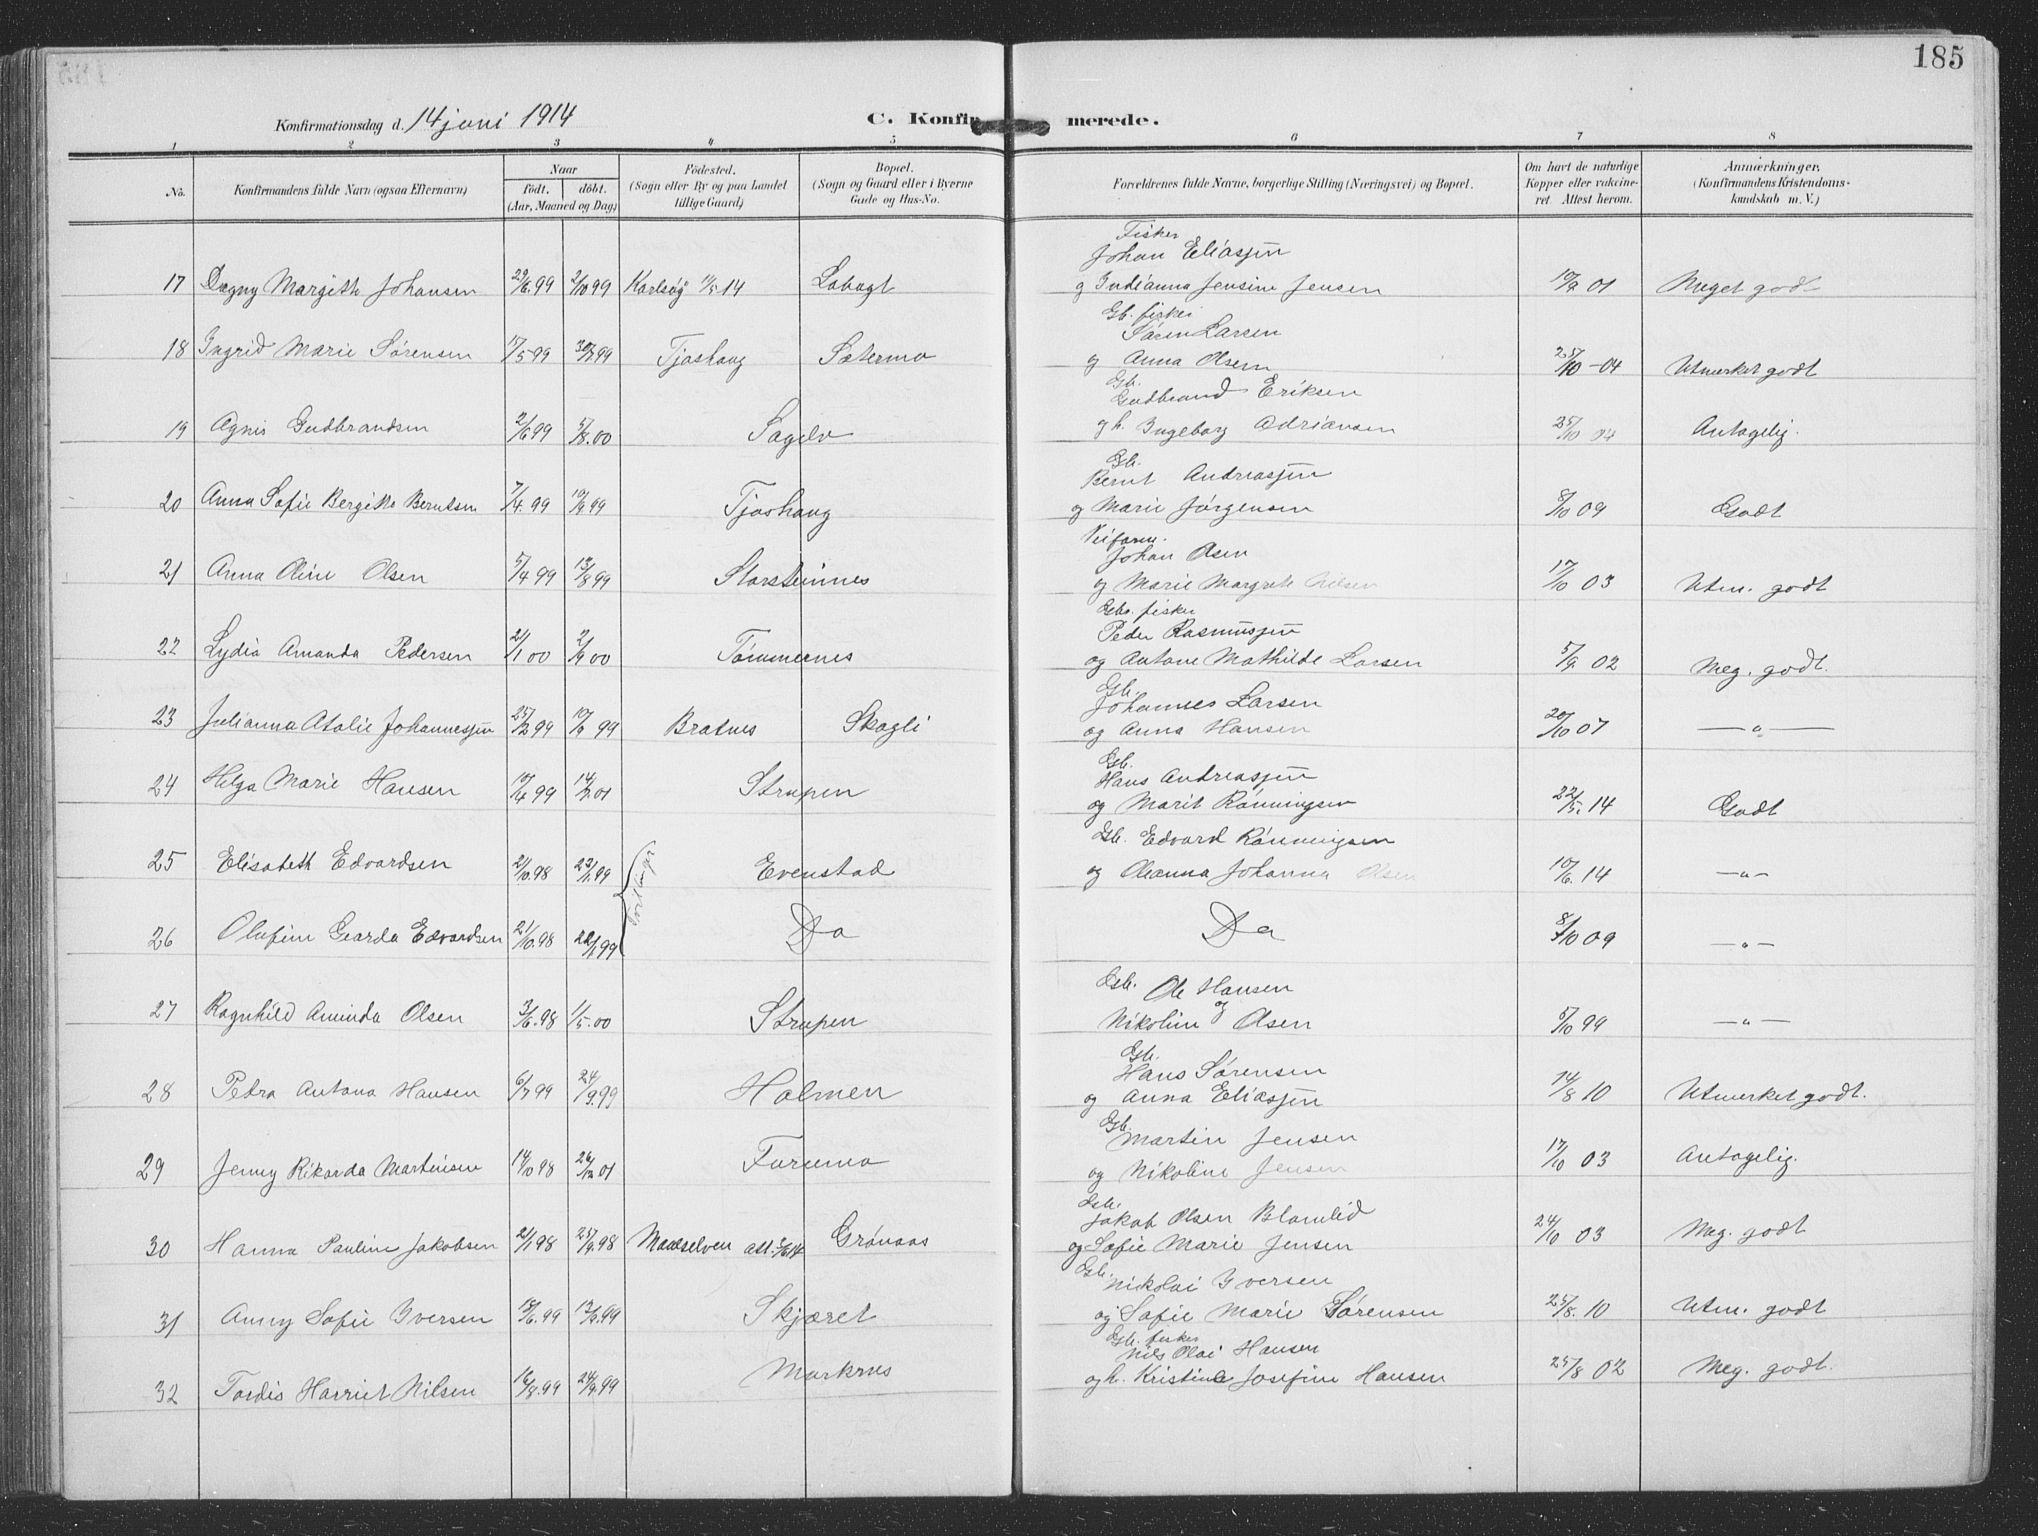 185
Konfirmationsdag d. 14 juni 1914 C. Konfirmerede.
1 2 3 4 5 6 7 8
No. Konfirmandens fulde Navn (ogsaa Efternavn) Naar født. døbt. (Aar, Maaned og Dag) Fødested. (Sogn eller By og paa Landet tillige Gaard) Bopæl. (Sogn og Gaard eller i Byerne Gade og Hus-No. Forældrenes fulde Navne, borgerlige Stilling (Næringsvei) og Bopæl. Om havt de naturlige Kopper eller vakcineret. Attest herom. Anmærkninger. (Konfirmandens Kristendomskundskab m. V.)
Fisker
Johan Eliasjen
17 Dagny Margith Johansen 29/6.99 2/10 99 Karlsøy 11/5 14 Labugt og Indianna Jensine Jensen 10/9 01 Meget godt
Gb. fisker
Søren Larsen
18 Ingrid Marie Sørensen 17/5 99 30/7 99 Tjoshaug Sætermo og Anna Olsen 25/10 -04 Utmerket godt
Gb.
Gudbrand Eriksen
19 Agnes Gudbrandsen 2/6 99 5/8.00 Sagelv og h. Ingeborg Adriansen 25/10 04 Antagelig.
Gb.
Bernt Andreasjen
20 Anna Sofie Bergitte Berntsen 7/4.99 10/9 99 Tjoshaug og Marie Jørgensen 8/10 09 Godt
Veiform.
Johan Olsen
21 Anna Oline Olsen 5/4 99 13/8 99 Storsteinnes og Marie Margrete Nilsen 17/10 03 Utm. godt
Gbr. fisker
Peder Rasmusjen
22 Lydia Amanda Pedersen 21/1 00 2/9 00 Tømmernes og Antone Mathilde Larsen 5/9 02 Meg. godt.
Gb.
Johannes Larsen
23 Julianna Atalie Johannesjen 25/2 99 10/9 99 Bratnes Skogli og Anna Hansen 20/10 07 — " —
Gb.
Hans Andreasjen
24 Helga Marie Hansen 10/4 99 14/7.01 Strupen og Marit Rønningsen 22/5.14 Godt
Gb. Edvard Rønningsen
25 Elisabeth Edvardsen 21/10.98 22/1.99 Tvillinger Evenstad og Oleanna Johanna Olsen 10/6.14 — " —
26 Olufine Gearda Edvardsen 21/10.98 22/1 99 Do Do 8/10 09 — " —
Gb. Ole Hansen
og
27 Ragnhild Aminda Olsen 3/6.98 1/5.00 Strupen Nikoline Olsen 5/10 99 — " —
Gb.
Hans Sørensen
28 Petra Antona Hansen 6/7 99 24/9.99 Holmen og Anna Eliasjen 14/8 10 Utmerket godt.
Gb.
Martin Jensen
29 Jenny Rikarda Martinsen 14/10 98 26/12 01 Furumo og Nikoline Jensen 17/10 03 Antagelig.
Gb.
Jakob Olsen Blomlid
30 Hanna Pauline Jakobsen 21/1 98 25/9.98 Maalselven att. 5/6 14 Grønaas og Sofie Marie Jensen 24/10 03 Meg. godt
Gb.
Nikolai Iversen
31 Anny Sofie Iversen 18/6.99 13/8.99 Skjæret og Sofie Marie Sørensen 25/8.10 Utm. godt
Gb. fisker
Nils Olai Hansen
32 Tordis Harriet Nilsen 16/8.99 24/9.99 Marknes og h. Kristine Josefine Hansen 25/8 02 Meg. godt.